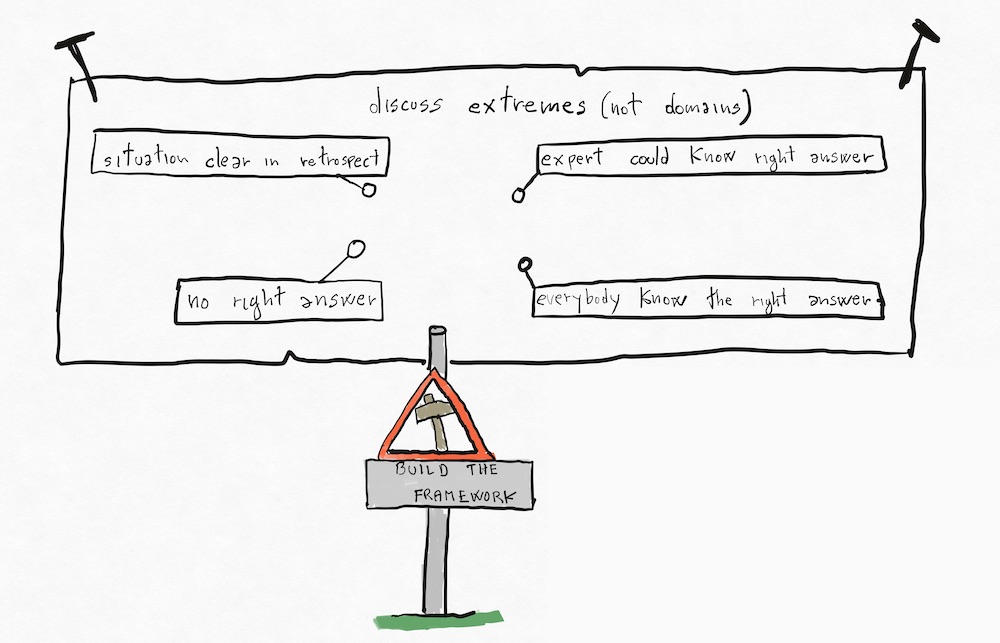 discuss extremes (not domains)
situation clear in retrospect
expert could know right answer
no right answer
everybody know the right answer
BUILD THE
FRAMEWORK